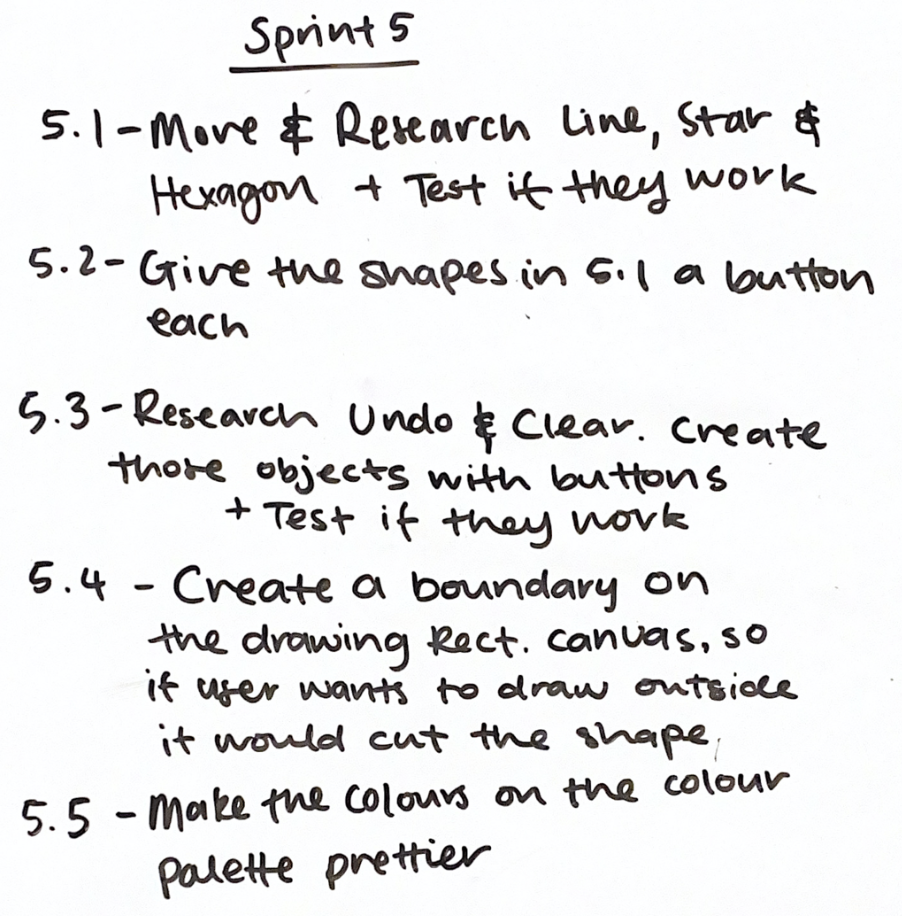 Sprint 5
5.1 - Move & Research Line, Star &
Hexagon + Test if they work
5.2 - Give the shapes in 5.1 a button
each
5.3 - Research Undo & Clear. Create
those objects with buttons
+ Test if they work
5.4 - Create a boundary on
the drawing Rect. canvas, so
if user wants to draw outside
it would cut the shape.
5.5 - Make the colours on the colour
palette prettier